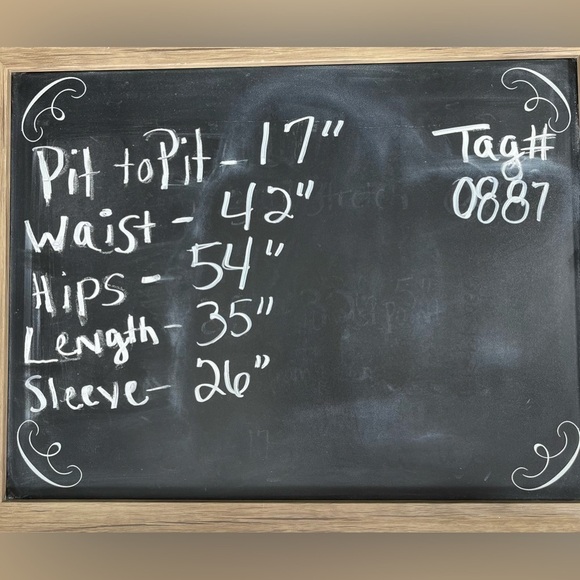 Pit to Pit - 17"
Tag#
0887
Waist - 42"
Hips - 54"
Length - 35"
Sleeve - 26"